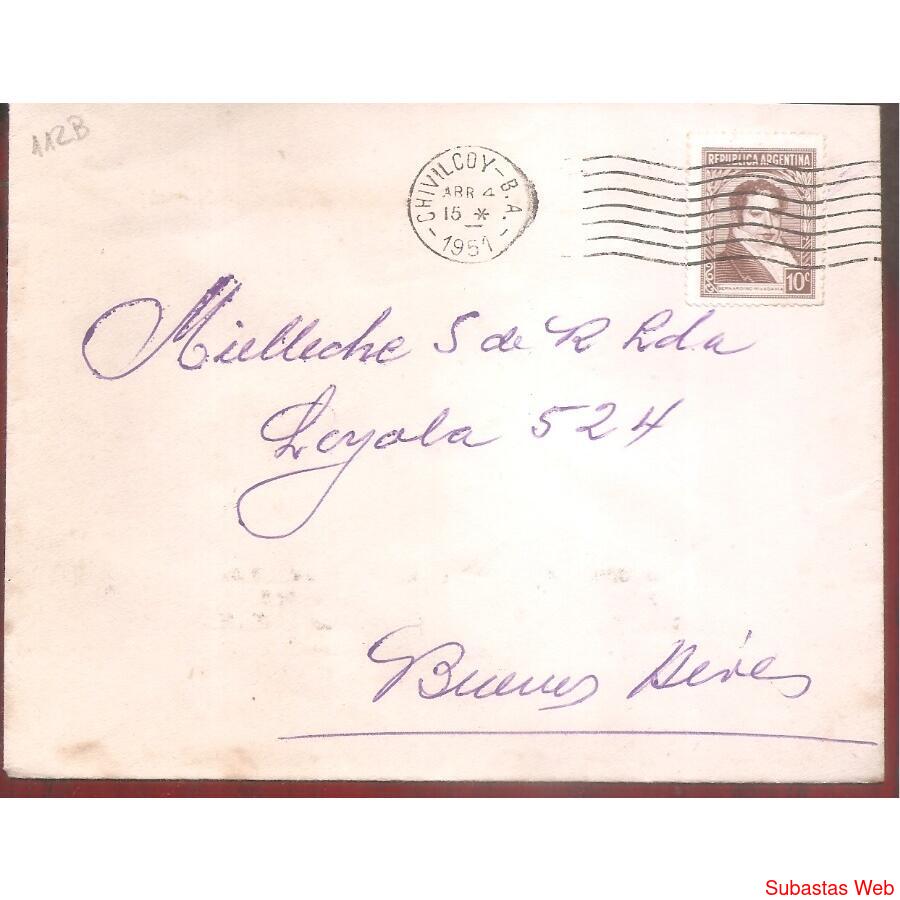 112B
CHIVILCOY - B.A.
ABR 4
15 *
1951
REPUBLICA ARGENTINA
BERNARDINO RIVADAVIA
10c
Mielleche S de R Lda
Loyola 524
Buenos Aires
Subastas Web